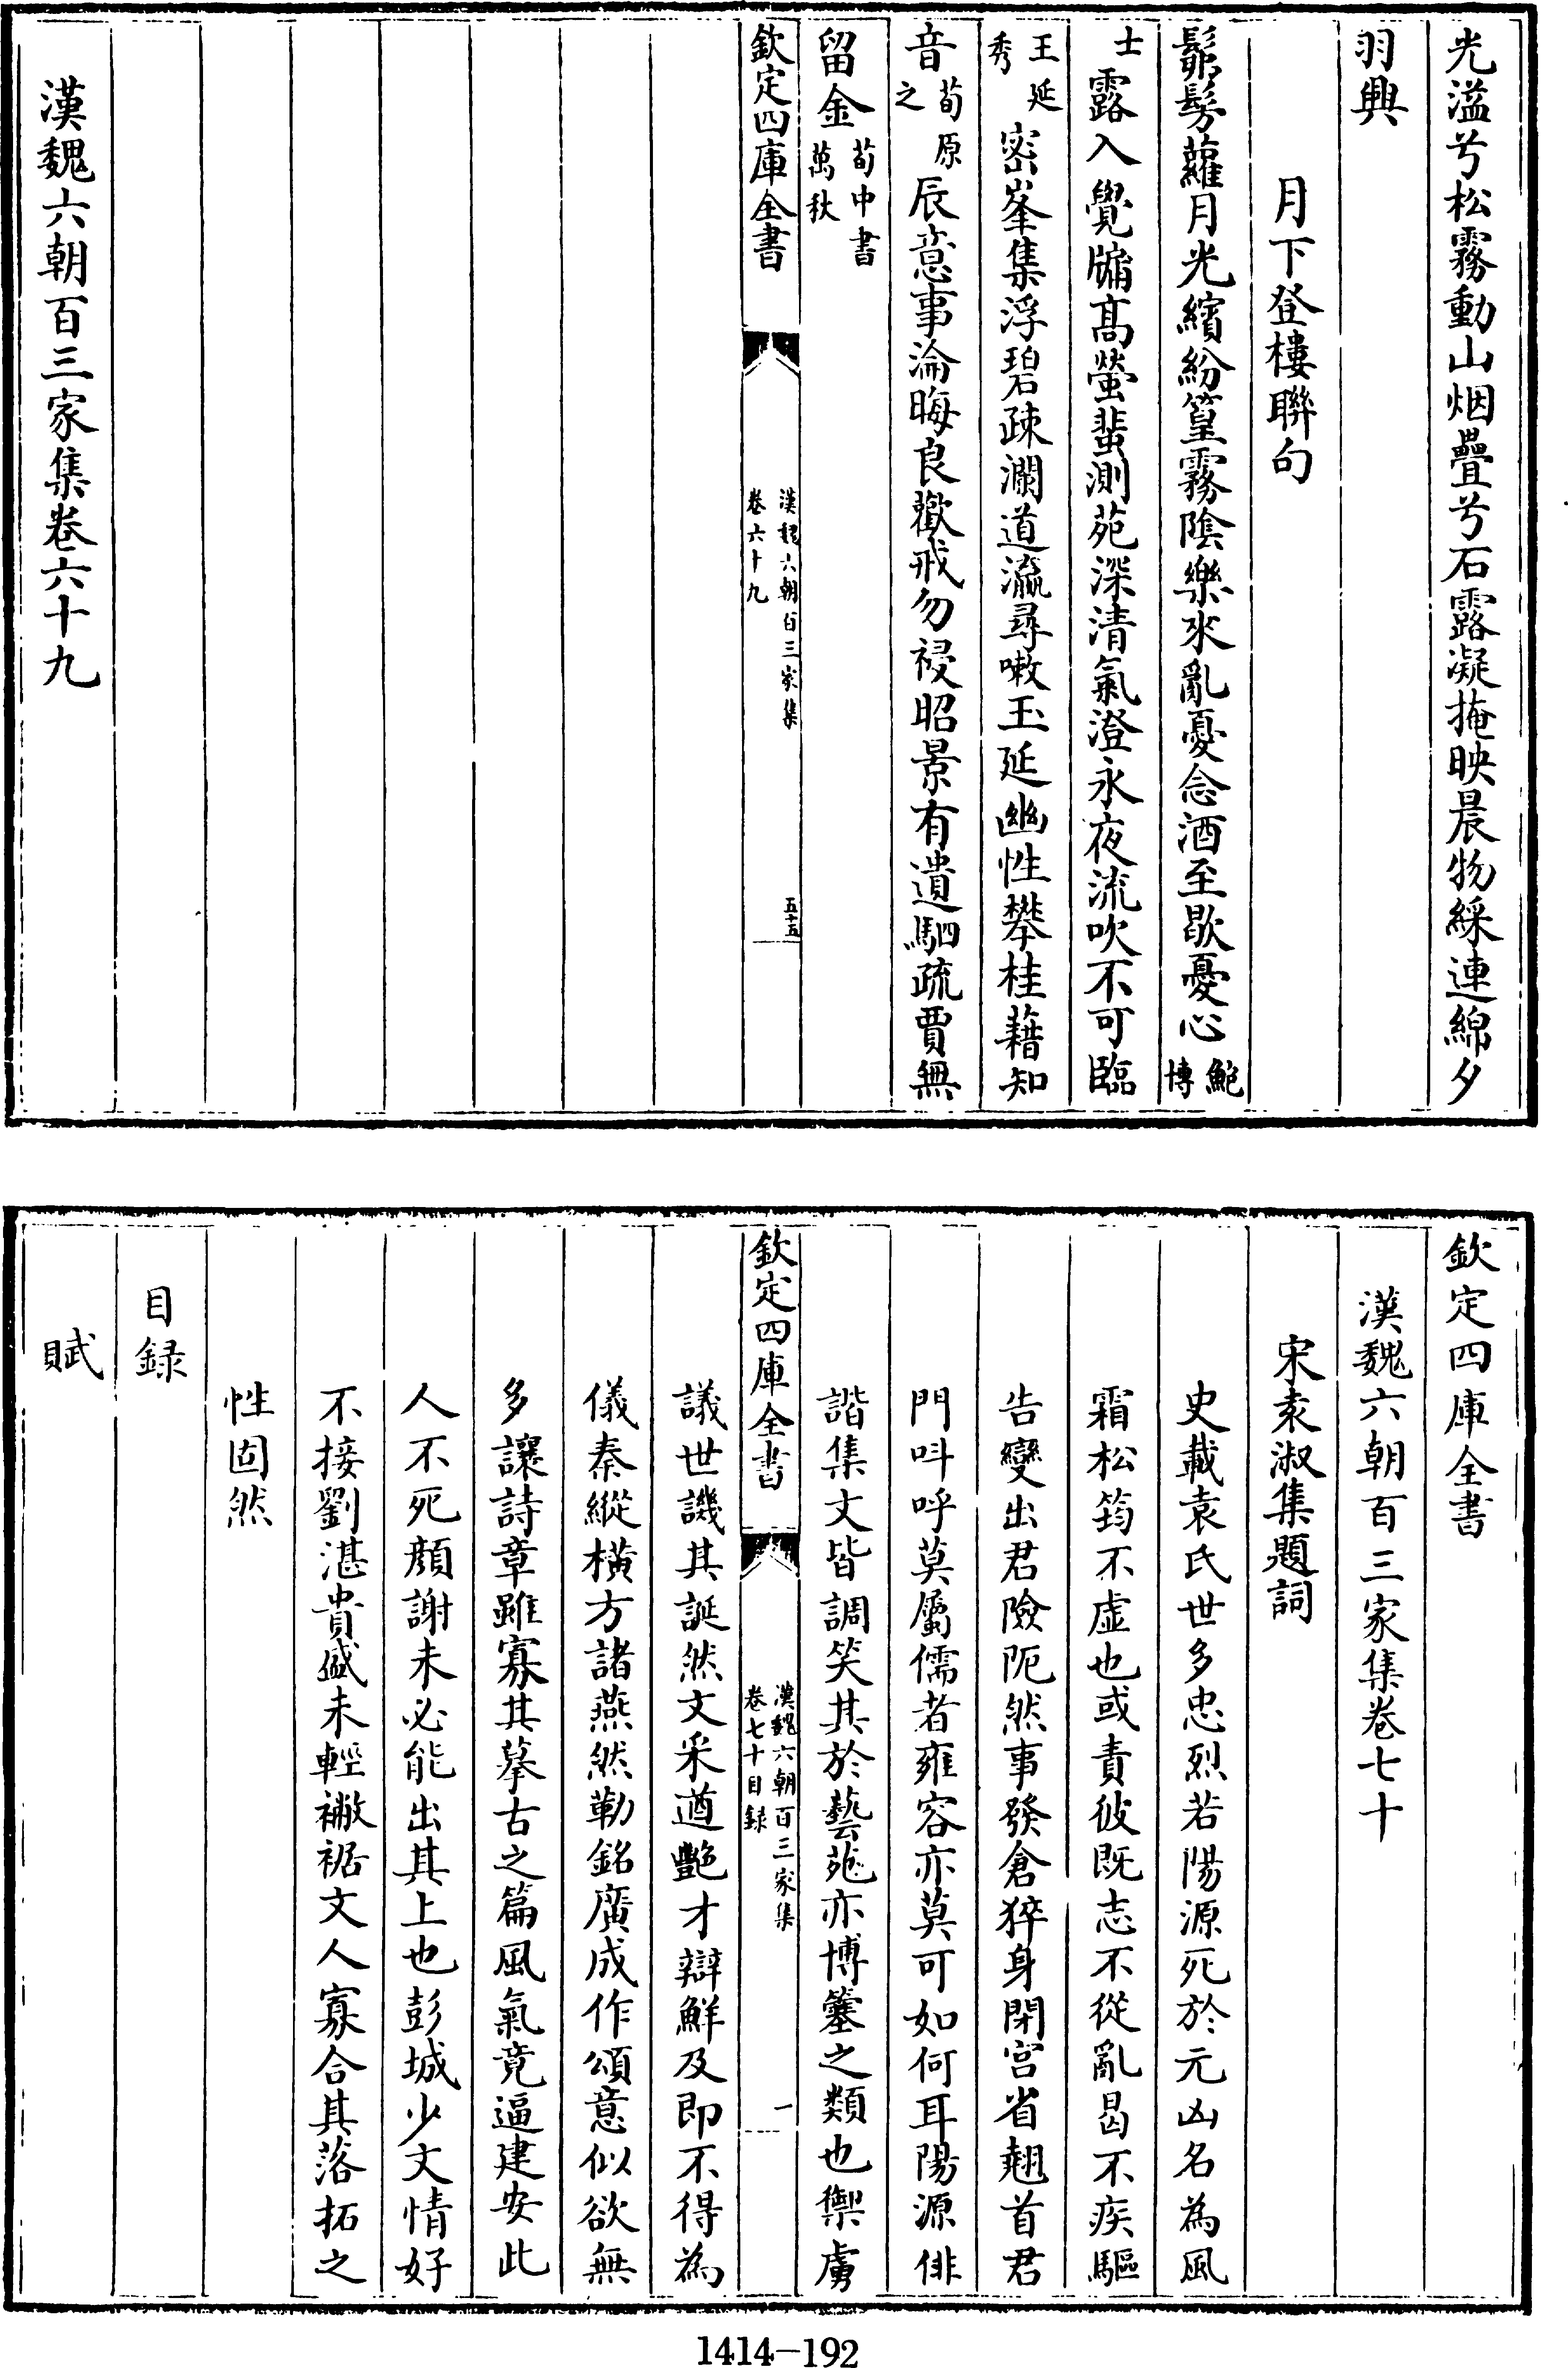 光溢兮松霧動山烟疊兮石露凝掩映晨物綵連綿夕
羽興
月下登樓聯句
髴髣蘿月光繽紛篁霧陰樂來亂憂念酒至歇憂心鮑博
士露入覺牖髙螢蜚測苑深清氣澄永夜流吹不可臨
王延秀密峯集浮碧疎瀾道瀛尋嗽玉延幽性攀桂藉知
音荀原之辰意事淪晦良歡戒勿祲昭景有遺駟疏賈無
留金荀中書萬秋
欽定四庫全書
漢魏六朝百三家集
卷六十九
五十五
漢魏六朝百三家集卷六十九
欽定四庫全書
漢魏六朝百三家集卷七十
宋袁淑集題詞
史載袁氏世多忠烈若陽源死於元凶名為風
霜松筠不虚也或責彼既志不從亂曷不疾驅
告變出君險阨然事發倉猝身閉宫省翹首君
門呌呼莫屬儒者雍容亦莫可如何耳陽源俳
諧集文皆調笑其於藝苑亦博簺之類也禦虜
欽定四庫全書
漢魏六朝百三家集
卷七十目録
一
議世譏其誕然文采遒艷才辯鮮及即不得為
儀秦縱横方諸燕然勒銘廣成作頌意似欲無
多讓詩章雖寡其摹古之篇風氣竟逼建安此
人不死顔謝未必能出其上也彭城少文情好
不接劉湛貴盛未輕襒裾文人寡合其落拓之
性固然
目録
賦
1414-192